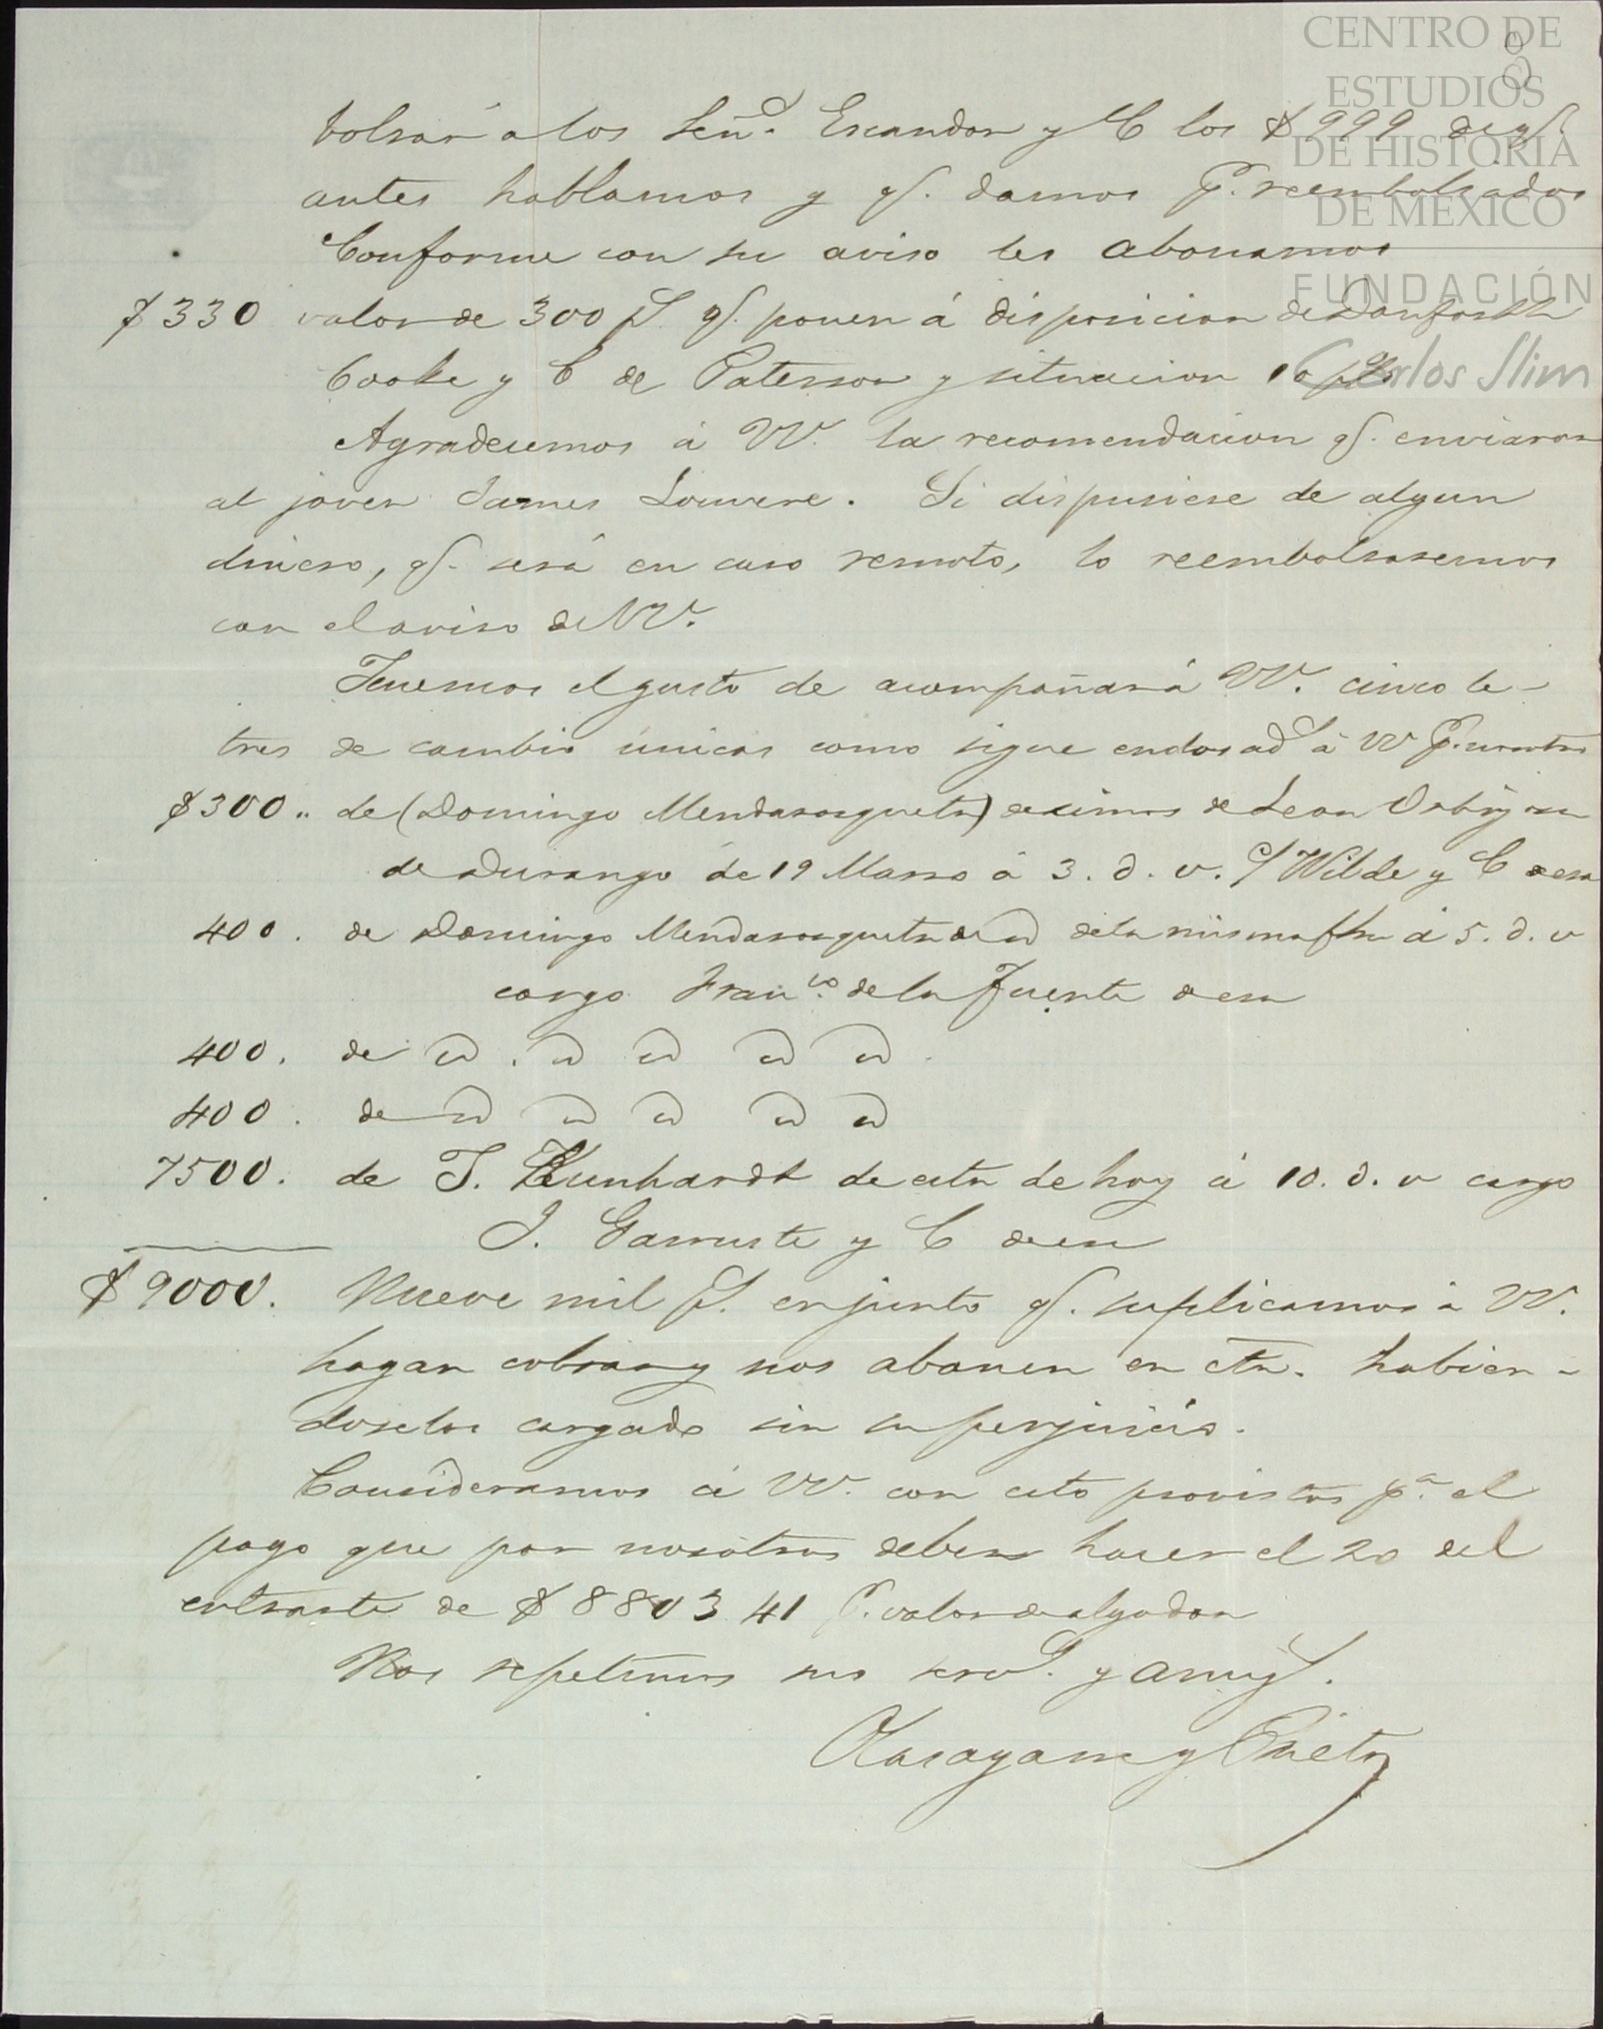 CENTRO DE
ESTUDIOS
DE HISTORIA
DE MEXICO
FUNDACIÓN
Carlos Slim
bolsar á los Señ.s Escandon y C los $999 de q.e
antes hablamos y q.e damos p.r reembolsados
Conforme con su aviso les abonamos
$330 valor de 300 p.s q.e ponen á disposicion de Danforth
Cooke y C de Paterson y situacion 10 p%
Agradecemos á VV. la recomendacion q.e enviaron
al joven James . Si dispusiese de algun
dinero, q.e será en caso remoto, lo reembolsaremos
con el aviso de VV.
Tenemos el gusto de acompañar á VV. cinco le-
tras de cambio únicas como sigue endosad.s á VV p.r nuestra
$300.. de (Domingo Mendarozqueta) decimos de Leon
de Durango de 19 Marzo á 3. d. v. c/ Wilde y C de esa
400. de Domingo Mendarozqueta de id de la misma fha á 5. d. v
cargo Fran.co de la Fuente de esa
400. de id . id id id id .
400. de id id id id id
7500. de T. Kunhardt de esta de hoy á 10. d. v cargo
J. Garruste y C de esa
$9000. Nueve mil p.s en junto q.e suplicamos á VV.
hagan cobrar y nos abonen en cta. habien-
doselos cargado sin su perjuicio.
Consideramos á VV. con esto provistos p.a el
pago que por nosotros deben hacer el 20 del
entrante de $8803 41 p.r valor de algodon
Nos repetimos sus serv.s y amig.s.
Olasagarre y Prieto